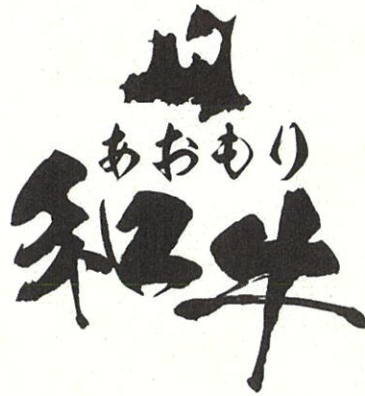 あおもり
和牛